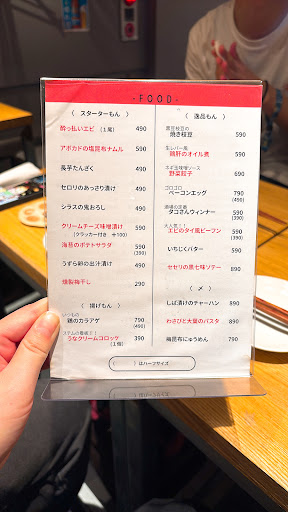 -FOOD-
〈 スターターもん 〉
酔っ払いエビ(1尾) 490
アボカドの塩昆布ナムル 590
長芋たんざく 490
セロリのあっさり漬け 490
シラスの鬼おろし 490
クリームチーズ味噌漬け 590
(クラッカー付き +100)
海苔のポテトサラダ 590
(390)
うずら卵の出汁漬け 490
燻製梅干し 290
〈 揚げもん 〉
いつもの
鶏のカラアゲ 790
(490)
うなクリームコロッケ 390
(1個)
〈 逸品もん 〉
黒豆枝豆の
焼き枝豆 590
生レバー風
鶏肝のオイル煮 790
ネギ玉味噌ソース
野菜餃子 690
ゴロゴロ
ベーコンエッグ 790
(490)
酒場の定番
タコさんウィンナー 590
(390)
大人気!!
エビのタイ風ビーフン 790
(490)
いちじくバター 590
セセリの黒七味ソテー 890
〈 〆 〉
しば漬けのチャーハン 890
わさびと大葉のパスタ 890
梅昆布にゅうめん 790
( )はハーフサイズ